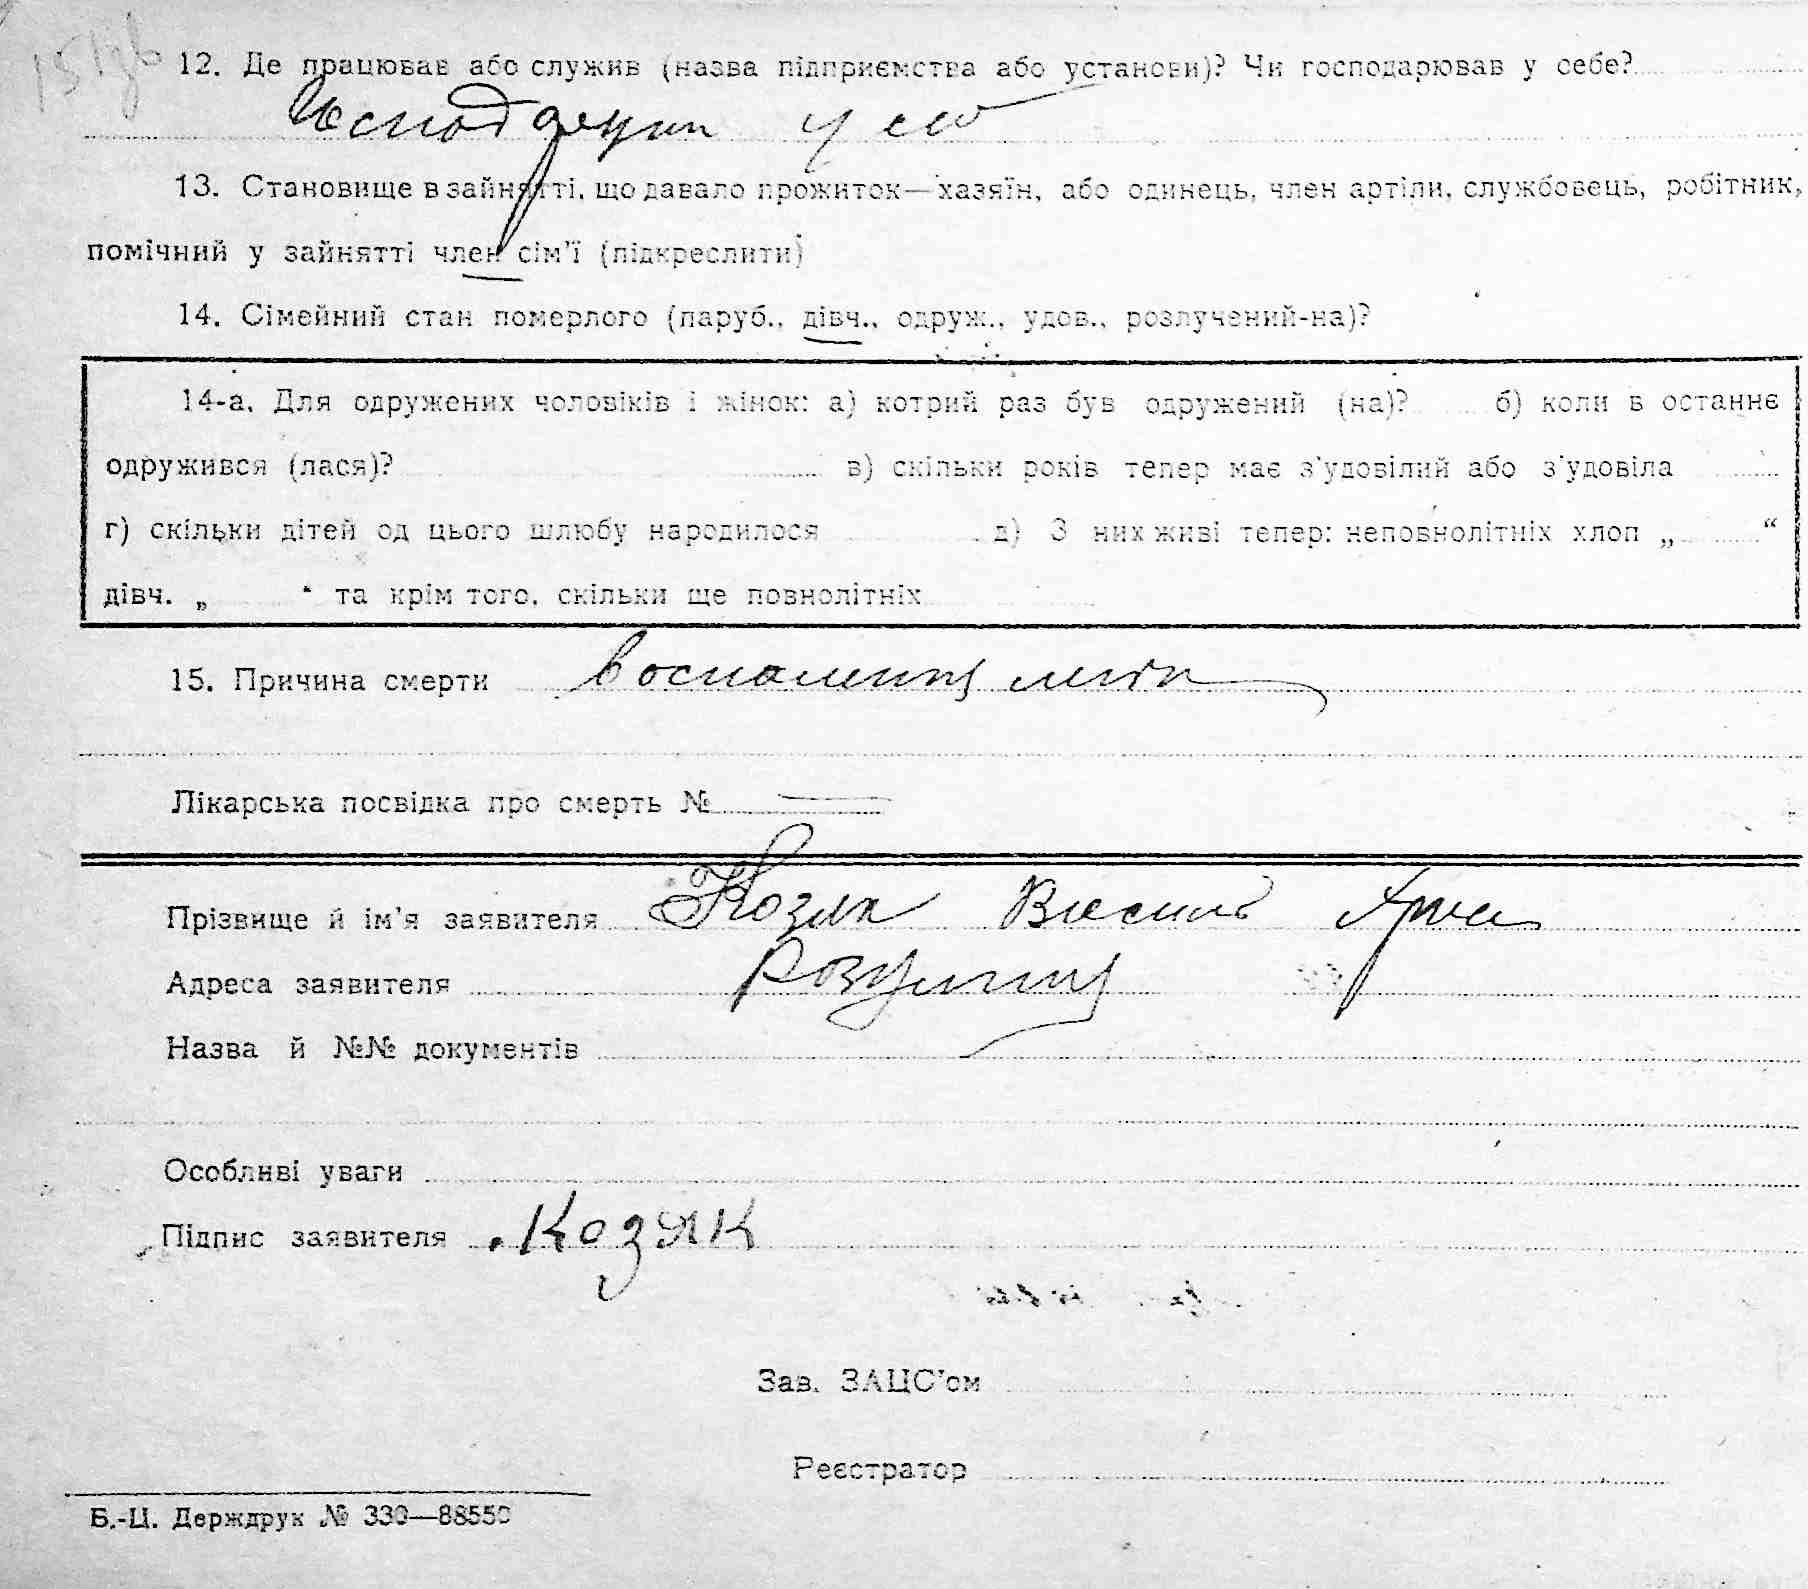 12. Де працював або служив (назва підприємства або установи)? Чи господарював у себе?
13. Становище в зайнятті, що давало прожиток—хазяїн, або одинець, член артіли, службовець, робітник,
помічний у зайнятті член сім'ї (підкреслити)
14. Сімейний стан померлого (паруб., дівч., одруж., удов., розлучений-на)?
14-а. Для одружених чоловіків і жінок: а) котрий раз був одружений (на)? б) коли в останнє
одружився (лася)? в) скільки років тепер має з'удовілий або з'удовіла
г) скільки дітей од цього шлюбу народилося д) З них живі тепер: неповнолітніх хлоп „ “
дівч. „ “ та крім того, скільки ще повнолітніх
15. Причина смерти воспаление легк
Лікарська посвідка про смерть №
Прізвище й ім'я заявителя Козяк Василь
Адреса заявителя
Назва й №№ документів
Особливі уваги
Підпис заявителя Козяк
Зав. ЗАЦС'ом
Реєстратор
Б.-Ц. Держдрук № 330—88550